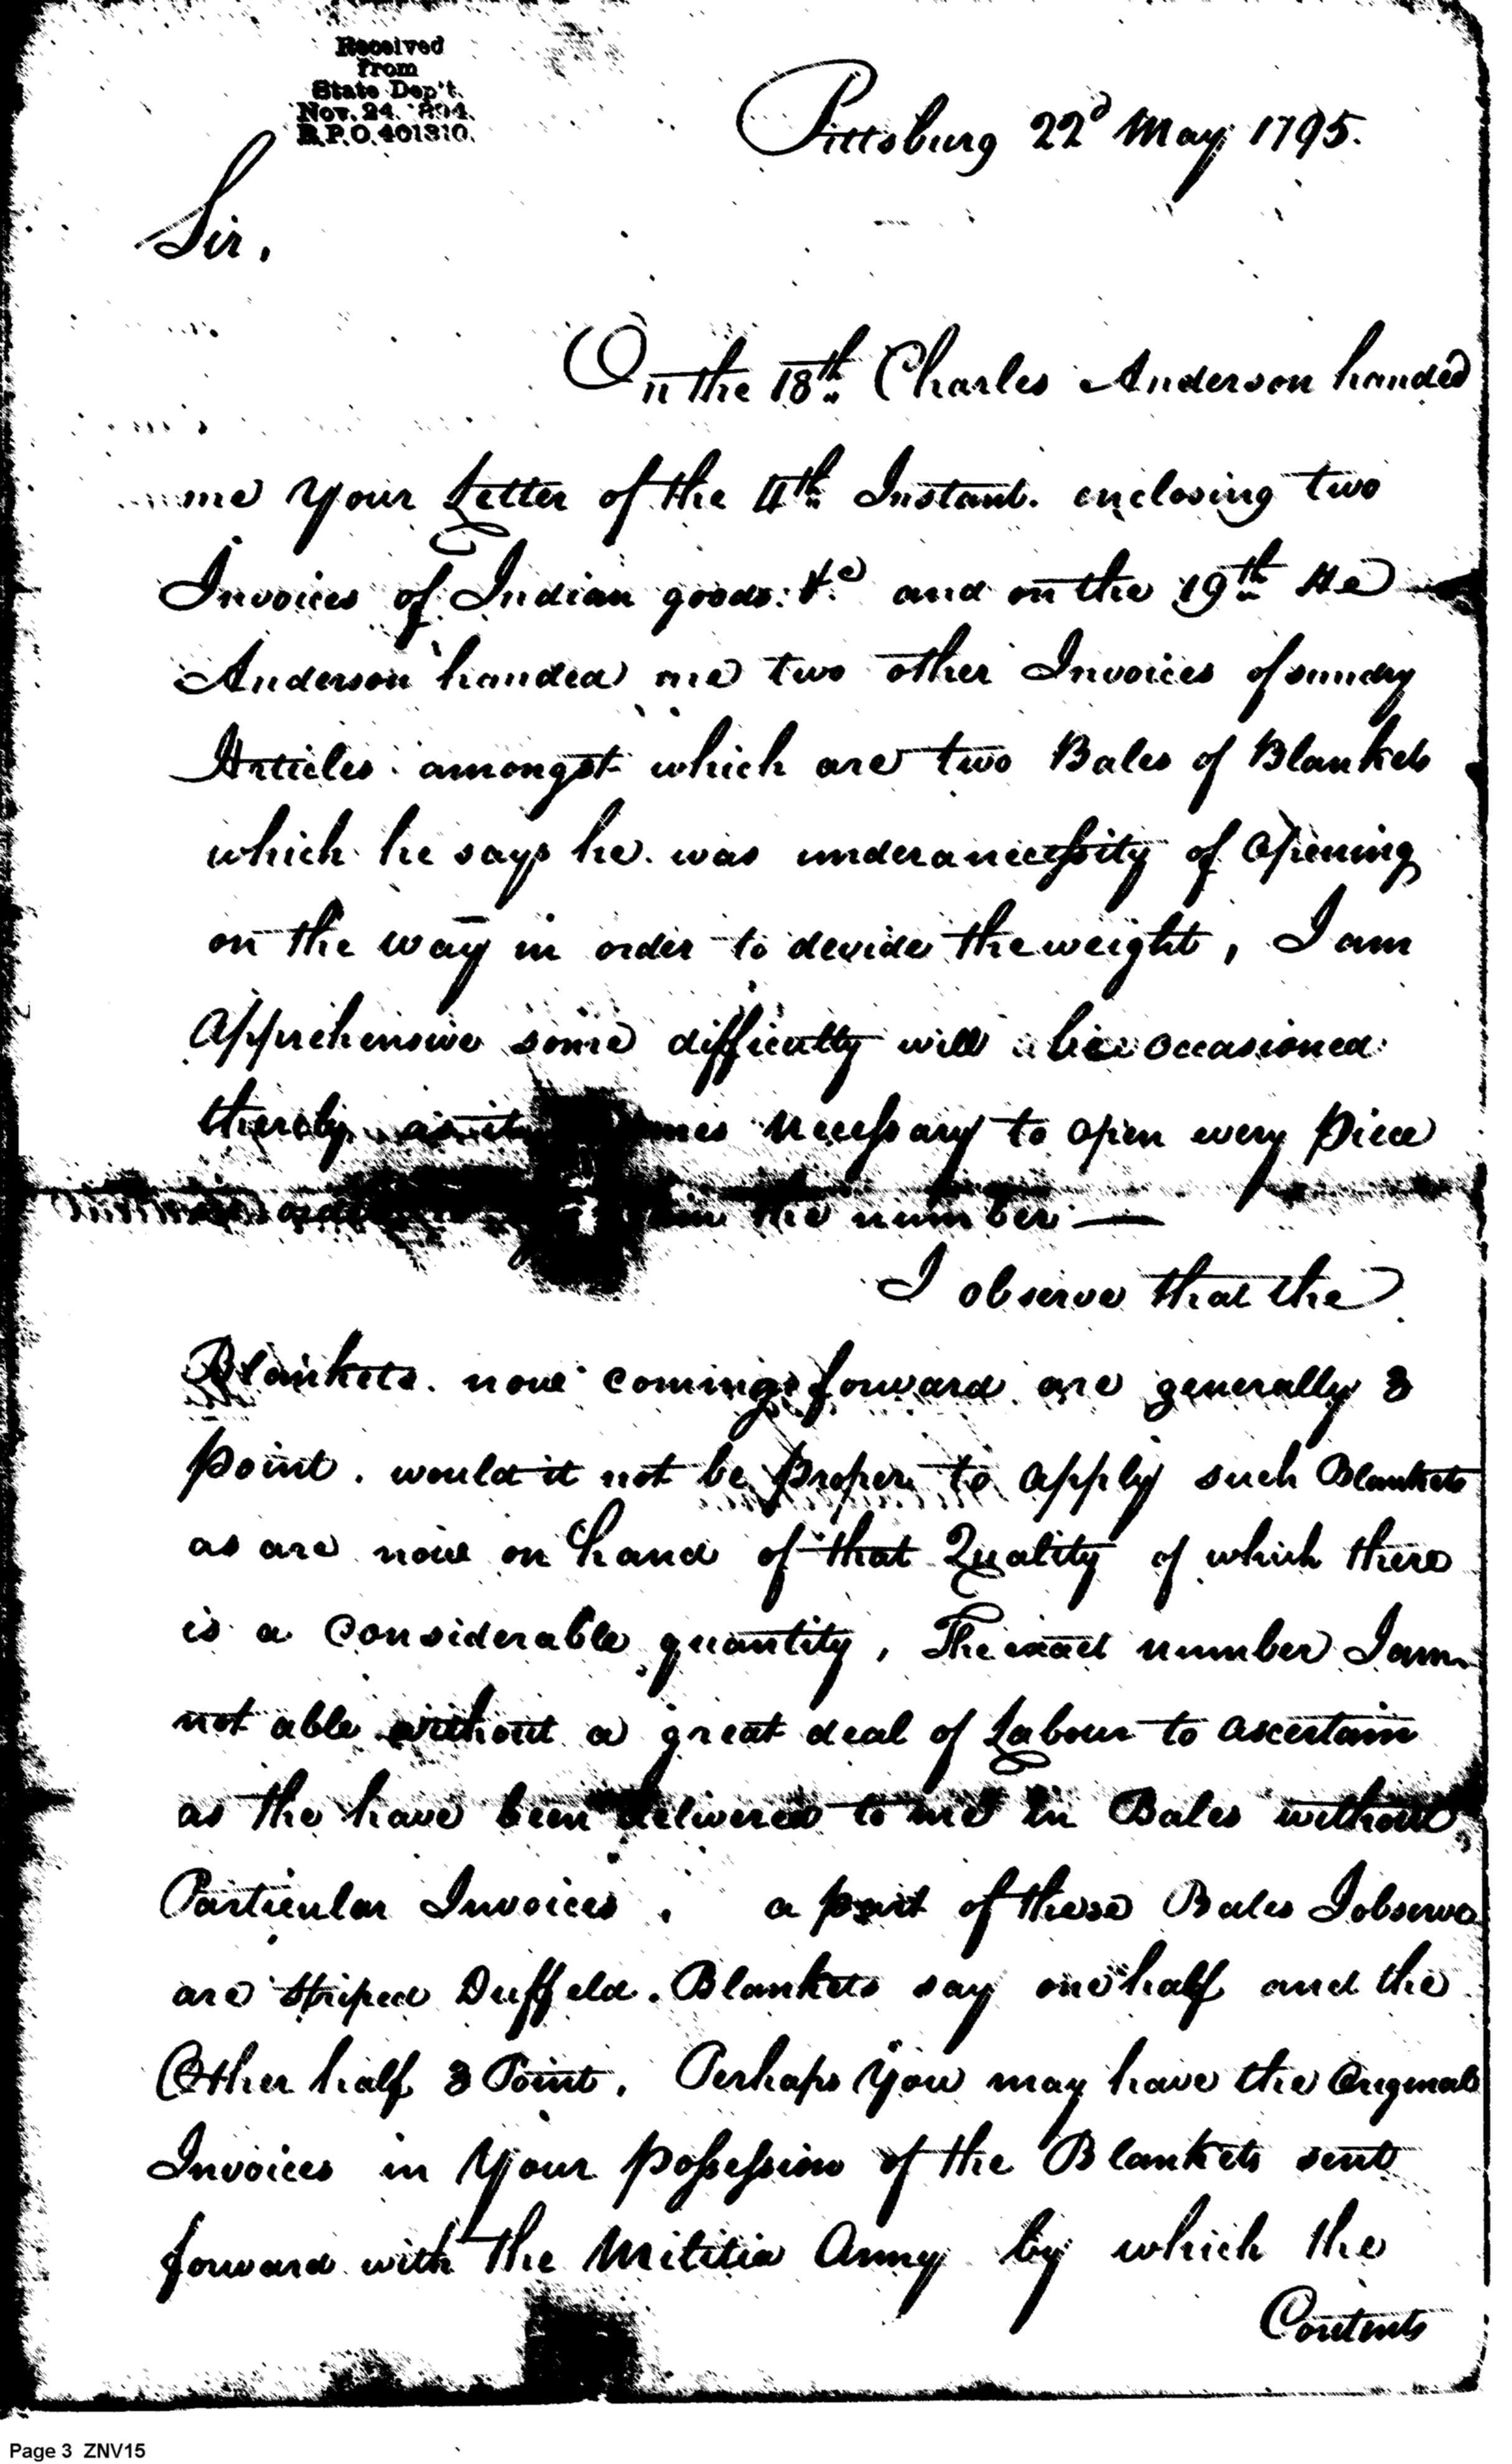 Received
from
State Dep't.
Nov. 24. 1894.
R.P.O. 401310.
Pittsburg 22d May 1795.
Sir,
On the 18th Charles Anderson handed
me your Letter of the 4th Instant. enclosing two
Invoices of Indian goods. &c and on the 19th He
Anderson handed me two other Invoices of sundry
Articles amongst which are two Bales of Blankets
which he says he was under a necessity of Opening
on the way in order to devide the weight, I am
Apprehensive some difficulty will be occasioned
thereby as it necessary to open every piece
the number —
I observe that the
Blankets now coming forward are generally 3
point. would it not be proper to apply such Blankets
as are now on hand of that Quality of which there
is a Considerable quantity, The exact number I am
not able without a great deal of Labour to ascertain
as the have been delivered to me in Bales without
Particular Invoices. a part of these Bales I observe
are striped Duffeld. Blankets say one half and the
Other half 3 Point. Perhaps you may have the Original
Invoices in your possession of the Blankets sent
forward with the Militia Army by which the
Contents
Page 3 ZNV15